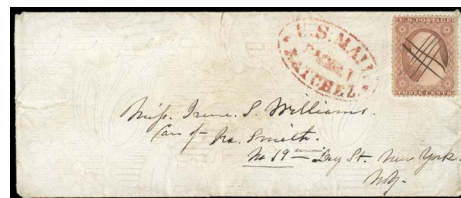 U.S. MAIL
PACKET
NATCHEZ
U.S. POSTAGE
THREE CENTS
Miss. Irene. S. Williams.
Care of Smith.
No 19 Dey St. New York.
N.Y.